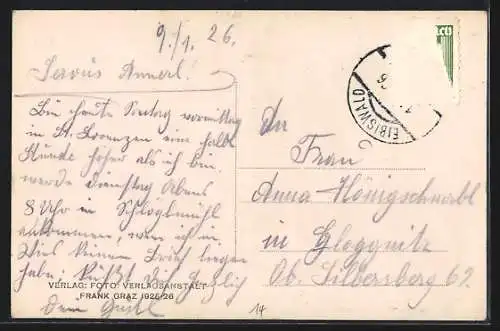 9./1. 26.
Servus Annerl.
Bin heute Sontag vormittag
in St. Lorenzen eine halbe
Stunde höher als ich bin,
werde Dienstag Abens
8 Uhr in Schlöglmühl
ankommen, wen ich in
Wies keinen Brief liegen
habe. Küßt Dich herzlich
Dein Gustl
VERLAG: FOTO: VERLAGSANSTALT
FRANK GRAZ 1925/26
EIBISWALD
An
Frau
Anna Königschwabl
in Gloggnitz
Ob. Silbersberg 62
14